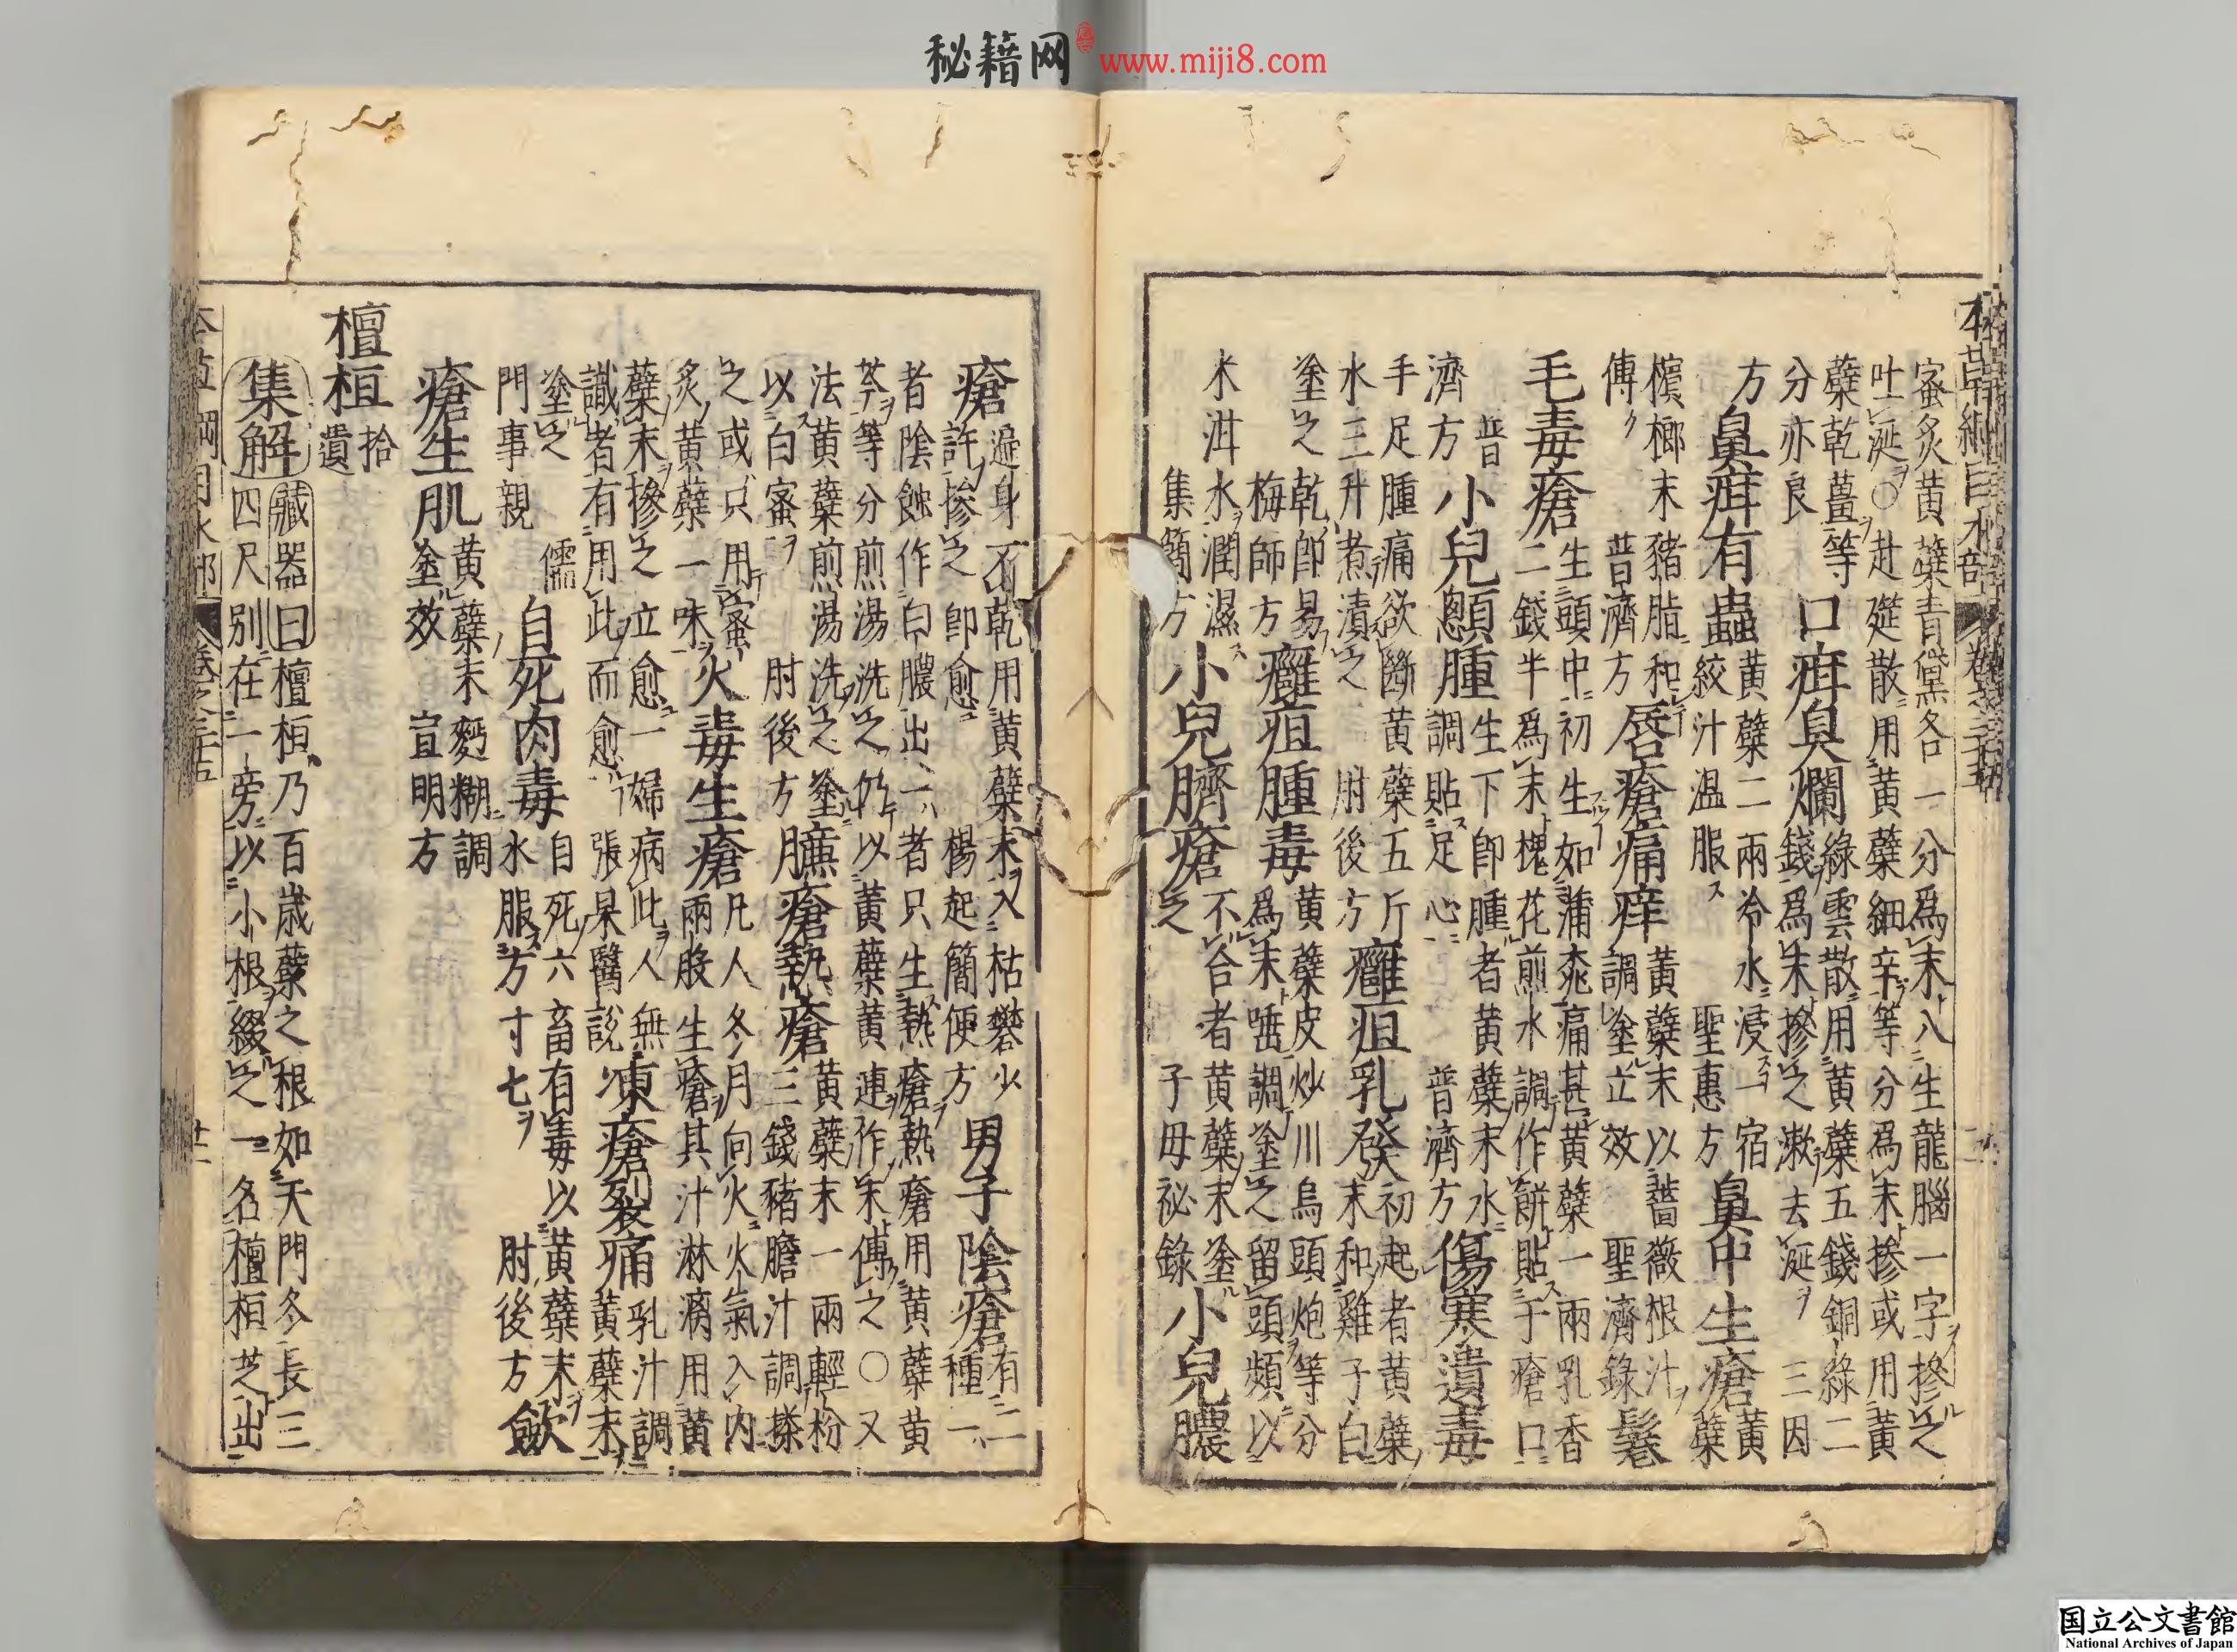 本草綱目木部 卷之三十五
蜜炙黃蘗青黛各一分爲末入生龍腦一字摻之吐涎○赴筵散用黃蘗細辛等分爲末摻或用黃
蘗乾薑等分亦良 口疳臭爛 綠雲散用黃蘗五錢銅綠二錢爲末摻之漱去涎 三因
方 鼻疳有蟲 黃蘗二兩冷水浸一宿絞汁温服 聖惠方 鼻中生瘡 黃蘗
檳榔末豬脂和傅 普濟方 唇瘡痛痒 黃蘗末以薔薇根汁調塗立效 聖濟錄 鬈
毛毒瘡 生頭中初生如蒲萄痛甚黃蘗一兩乳香二錢半爲末槐花煎水調作餅貼于瘡口
普濟方 小兒顖腫 生下即腫者黃蘗末水調貼足心 普濟方 傷寒遺毒
手足腫痛欲斷黃蘗五斤水三升煮漬之 肘後方 癰疽乳發 初起者黃蘗末和雞子白
塗之乾即易 梅師方 癰疽腫毒 黃蘗皮炒川烏頭炮等分爲末唾調塗之留頭頻以
米泔水潤濕 集簡方 小兒臍瘡 不合者黃蘗末塗之 子母祕錄 小兒膿
瘡 遍身不乾用黃蘗末入枯礬少許摻之即愈 楊起簡便方 男子陰瘡 有二種一
者陰蝕作白膿出一者只生熱瘡熱瘡用黃蘗黃芩等分煎湯洗之仍以黃蘗黃連作末傅之○又
法黃蘗煎湯洗之塗以白蜜 肘後方 臁瘡熱瘡 黃蘗末一兩輕粉三錢豬膽汁調搽
之或只用蜜炙黃蘗一味 火毒生瘡 凡人冬月向火火氣入內兩股生瘡其汁淋漓用黃
蘗末摻之立愈一婦病此人無識者有用此而愈 張杲醫說 凍瘡裂痛 乳汁調黃蘗末
塗之 儒門事親 自死肉毒 自死六畜有毒以黃蘗末水服方寸七 肘後方 斂
瘡生肌 黃蘗末麪糊調塗效 宣明方
檀桓 拾遺
集解 藏器曰檀桓乃百歲蘗之根如天門冬長三四尺別在一旁以小根綴之一名檀桓芝出
秘籍网 www.miji8.com
国立公文書館
National Archives of Japan